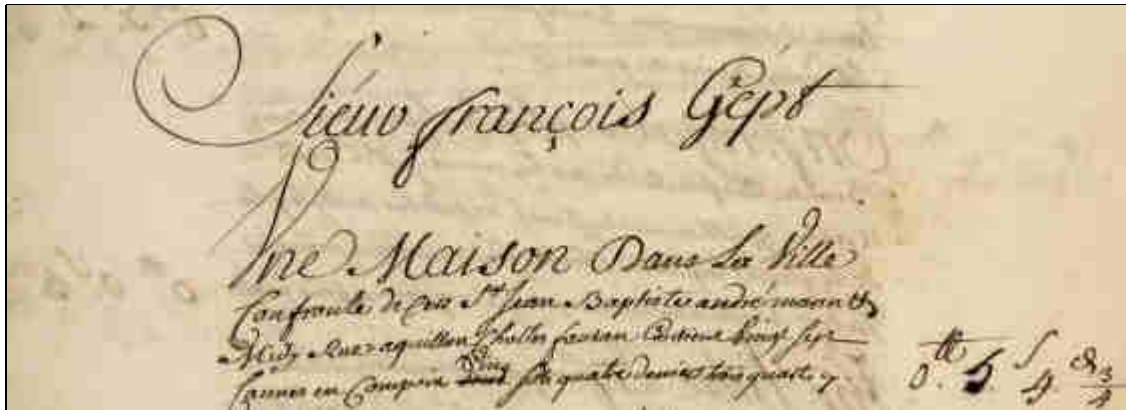 Sieur françois Gept
Vne Maison Dans La Ville
Confronte de Cers St Jean Baptiste andré marin &
Midy Rue aquillon Contient
Cannes en Compoix Cinq quatre deniers trois quarts
0.tt 5.s 4.d 3/4